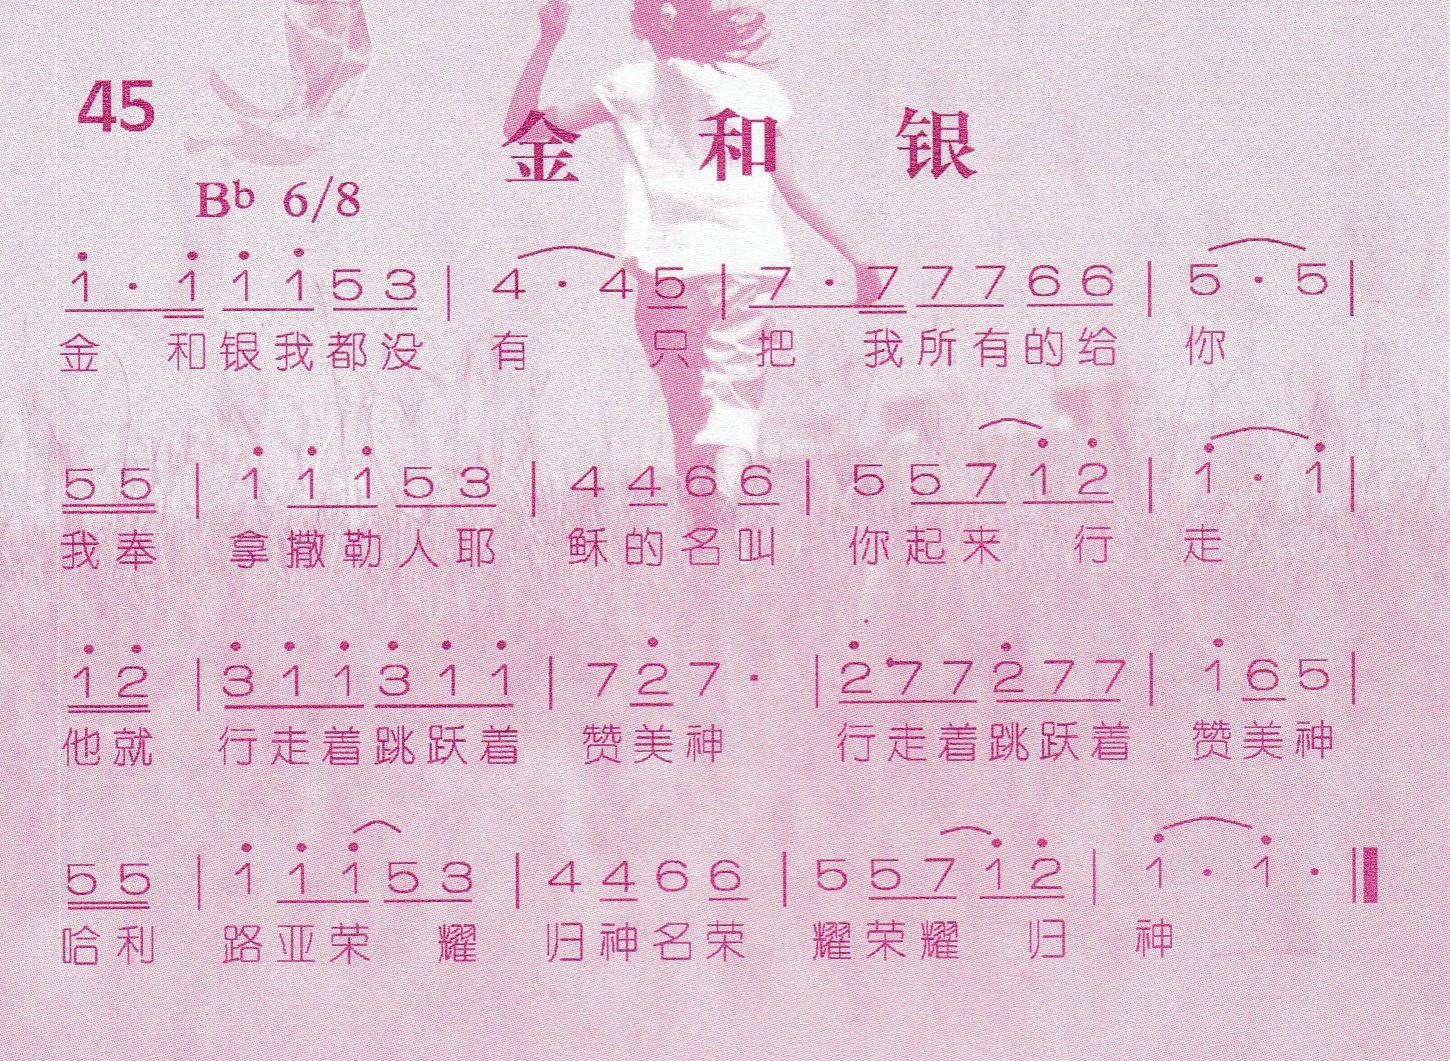 45
金和银
Bb 6/8
1·111153|4·45|7·77766|5·5|
金和银我都没有只把我所有的给你
55|11153|4466|55712|1·1|
我奉拿撒勒人耶稣的名叫你起来行走
12|311311|727·|277277|165|
他就行走着跳跃着赞美神行走着跳跃着赞美神
55|11153|4466|55712|1·1·
哈利路亚荣耀归神名荣耀荣耀归神